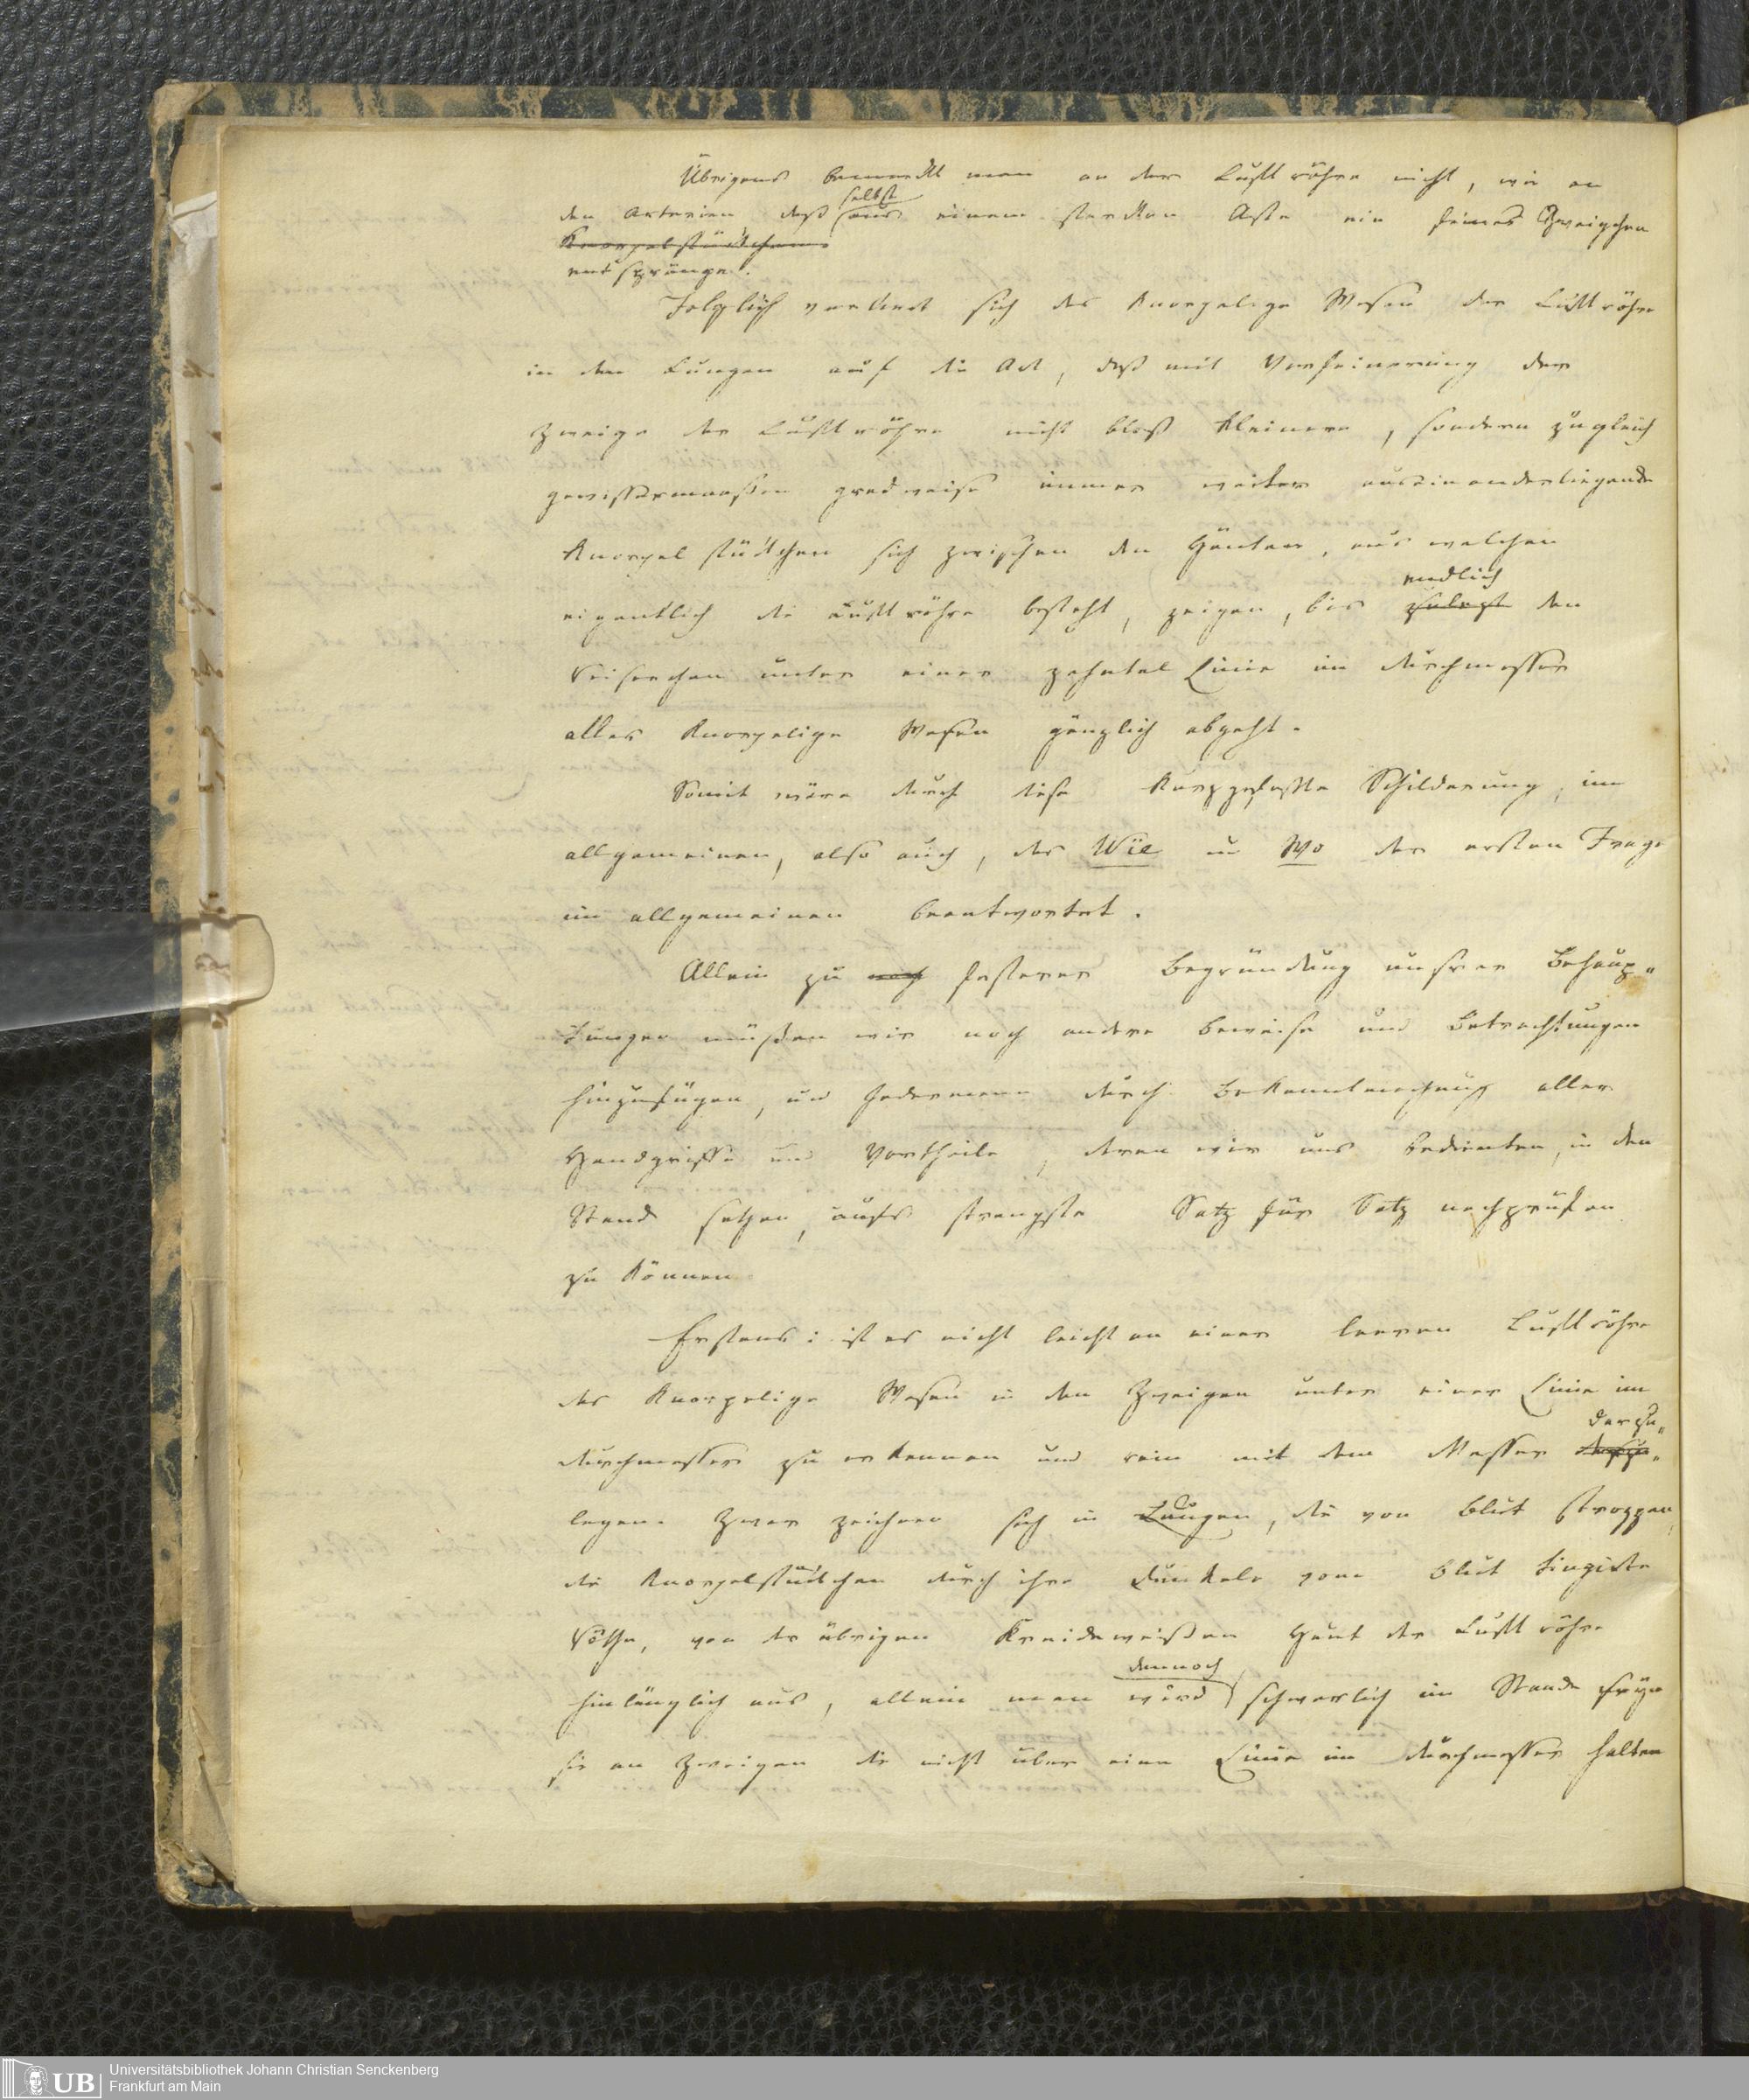 Übrigens bemerkt man an der Luftröhre nicht, wie an
selbst
den Arterien daß aus einem starken Aste ein feines Zweigchen
Knorpelstückchen
entspränge.
Folglich verliert sich das Knorpelige Wesen der Luftröhre
in den Lungen auf die Art, daß mit Verfeinerung der
Zweige der Luftröhre nicht bloß kleinere, sondern zugleich
gewissermaaßen gradweise immer weiter auseinanderliegende
Knorpelstückchen sich zwischen den Häuten, aus welchen
endlich
eigentlich die Luftröhre besteht, zeigen, bis zulezt den
Reiserchen unter einer zehntel Linie im durchmesser
alles Knorpelige Wesen gänzlich abgeht.
Somit wäre durch diese Kurzgefaßte Schilderung, im
allgemeinen, also auch, das Wie u Wo der ersten Frage
im allgemeinen beantwortet.
Allein zu noch festerer Begründung unsrer Behaup-
tungen müßen wir noch andere Beweise und Betrachtungen
hinzufügen, und Jedermann durch Bekanntmachung aller
Handgriffe und Vortheile, deren wir uns bedienten, in den
Stand setzen, aufs strengste Satz für Satz nachprüfen
zu Können
Erstens: ist es nicht leicht an einer leeren Luftröhre
das Knorpelige Wesen in den Zweigen unter einer Linie im
darzu-
durchmesser zu erkennen und rein mit dem Messer
legen. Zwar zeichnen sich in Lungen, die von Blut strozzen,
die Knorpelstückchen durch ihre dunkele vom Blut tingirte
Röthe, von der übrigen Kreideweißen Haut der Luftröhre
dennoch
hinlänglich aus, allein man wird schwerlich im Stande seyn
sie an Zweigen die nicht über eine Linie im durchmesser halten
Universitätsbibliothek Johann Christian Senckenberg
Frankfurt am Main
UB